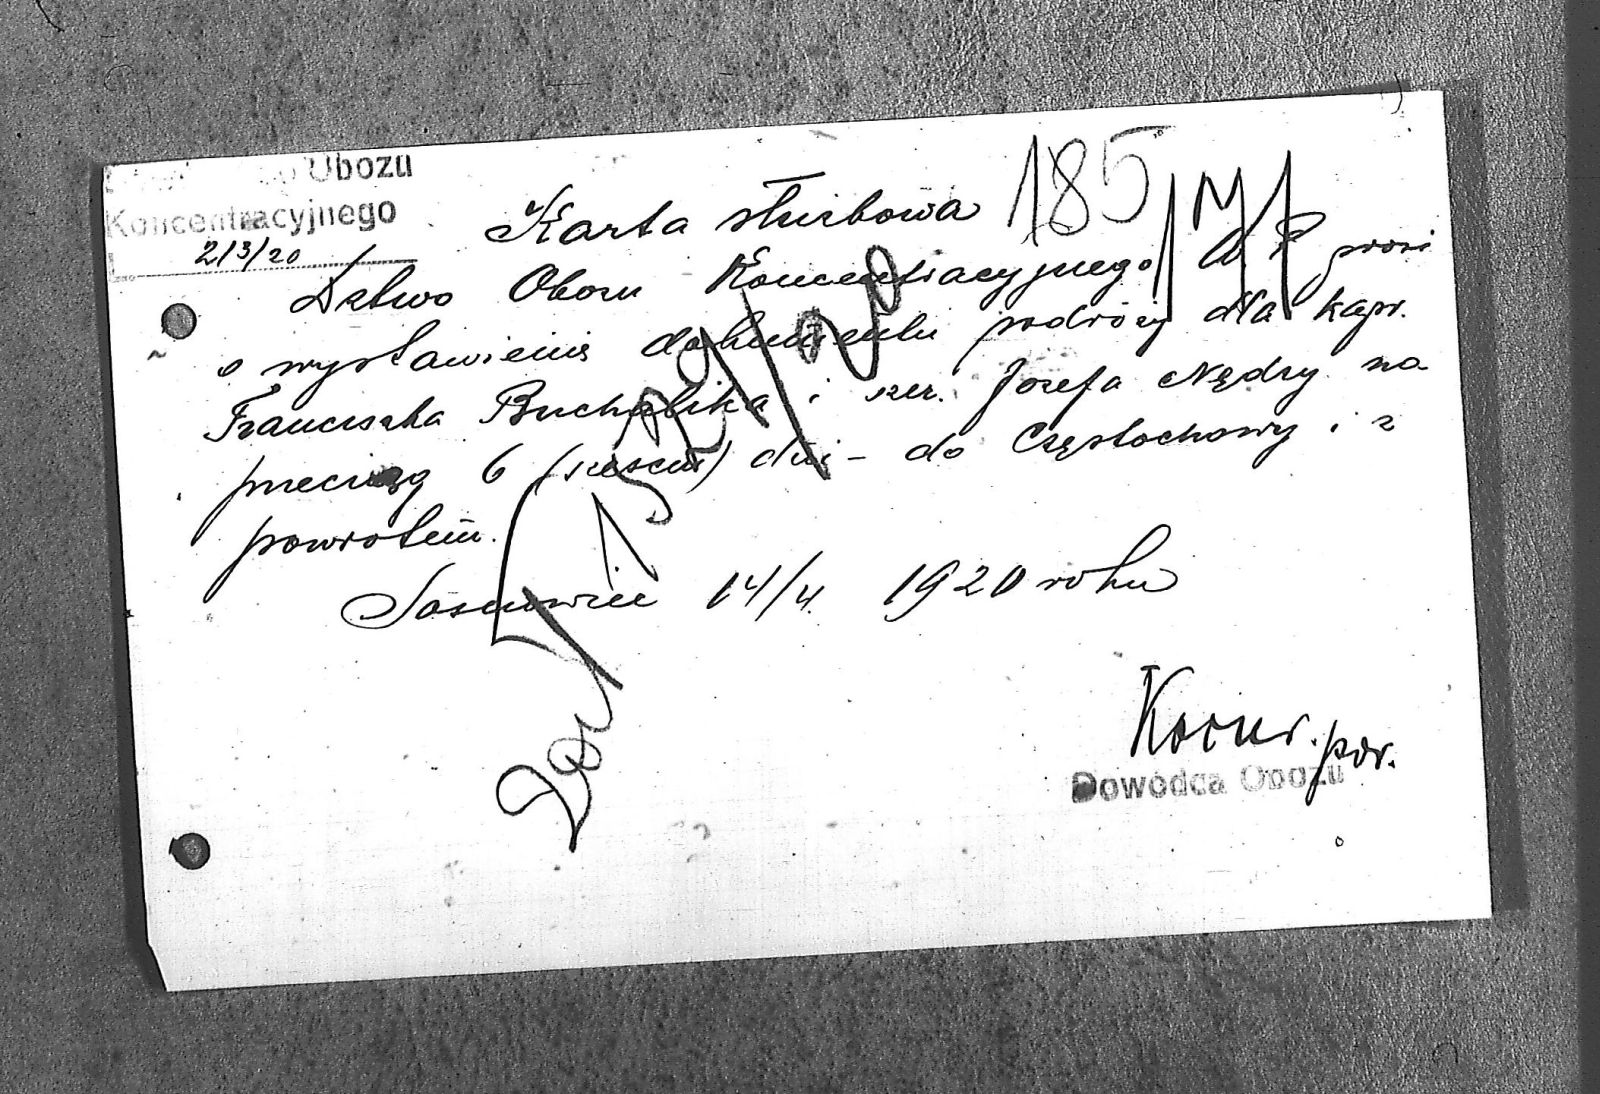 Obozu
Koncentracyjnego
2/3/20
185
Karta służbowa
Dztwo Obozu Koncentracyjnego W P prosi
o wystawienie dokumentu podróży dla kapr.
Franciszka Buchalika i szer. Józefa Nędzy na
przeciąg 6 (sześciu) dni – do Częstochowy i z
powrotem.
Sosnowiec 14/4 1920 roku
por.
Dowódca Obozu